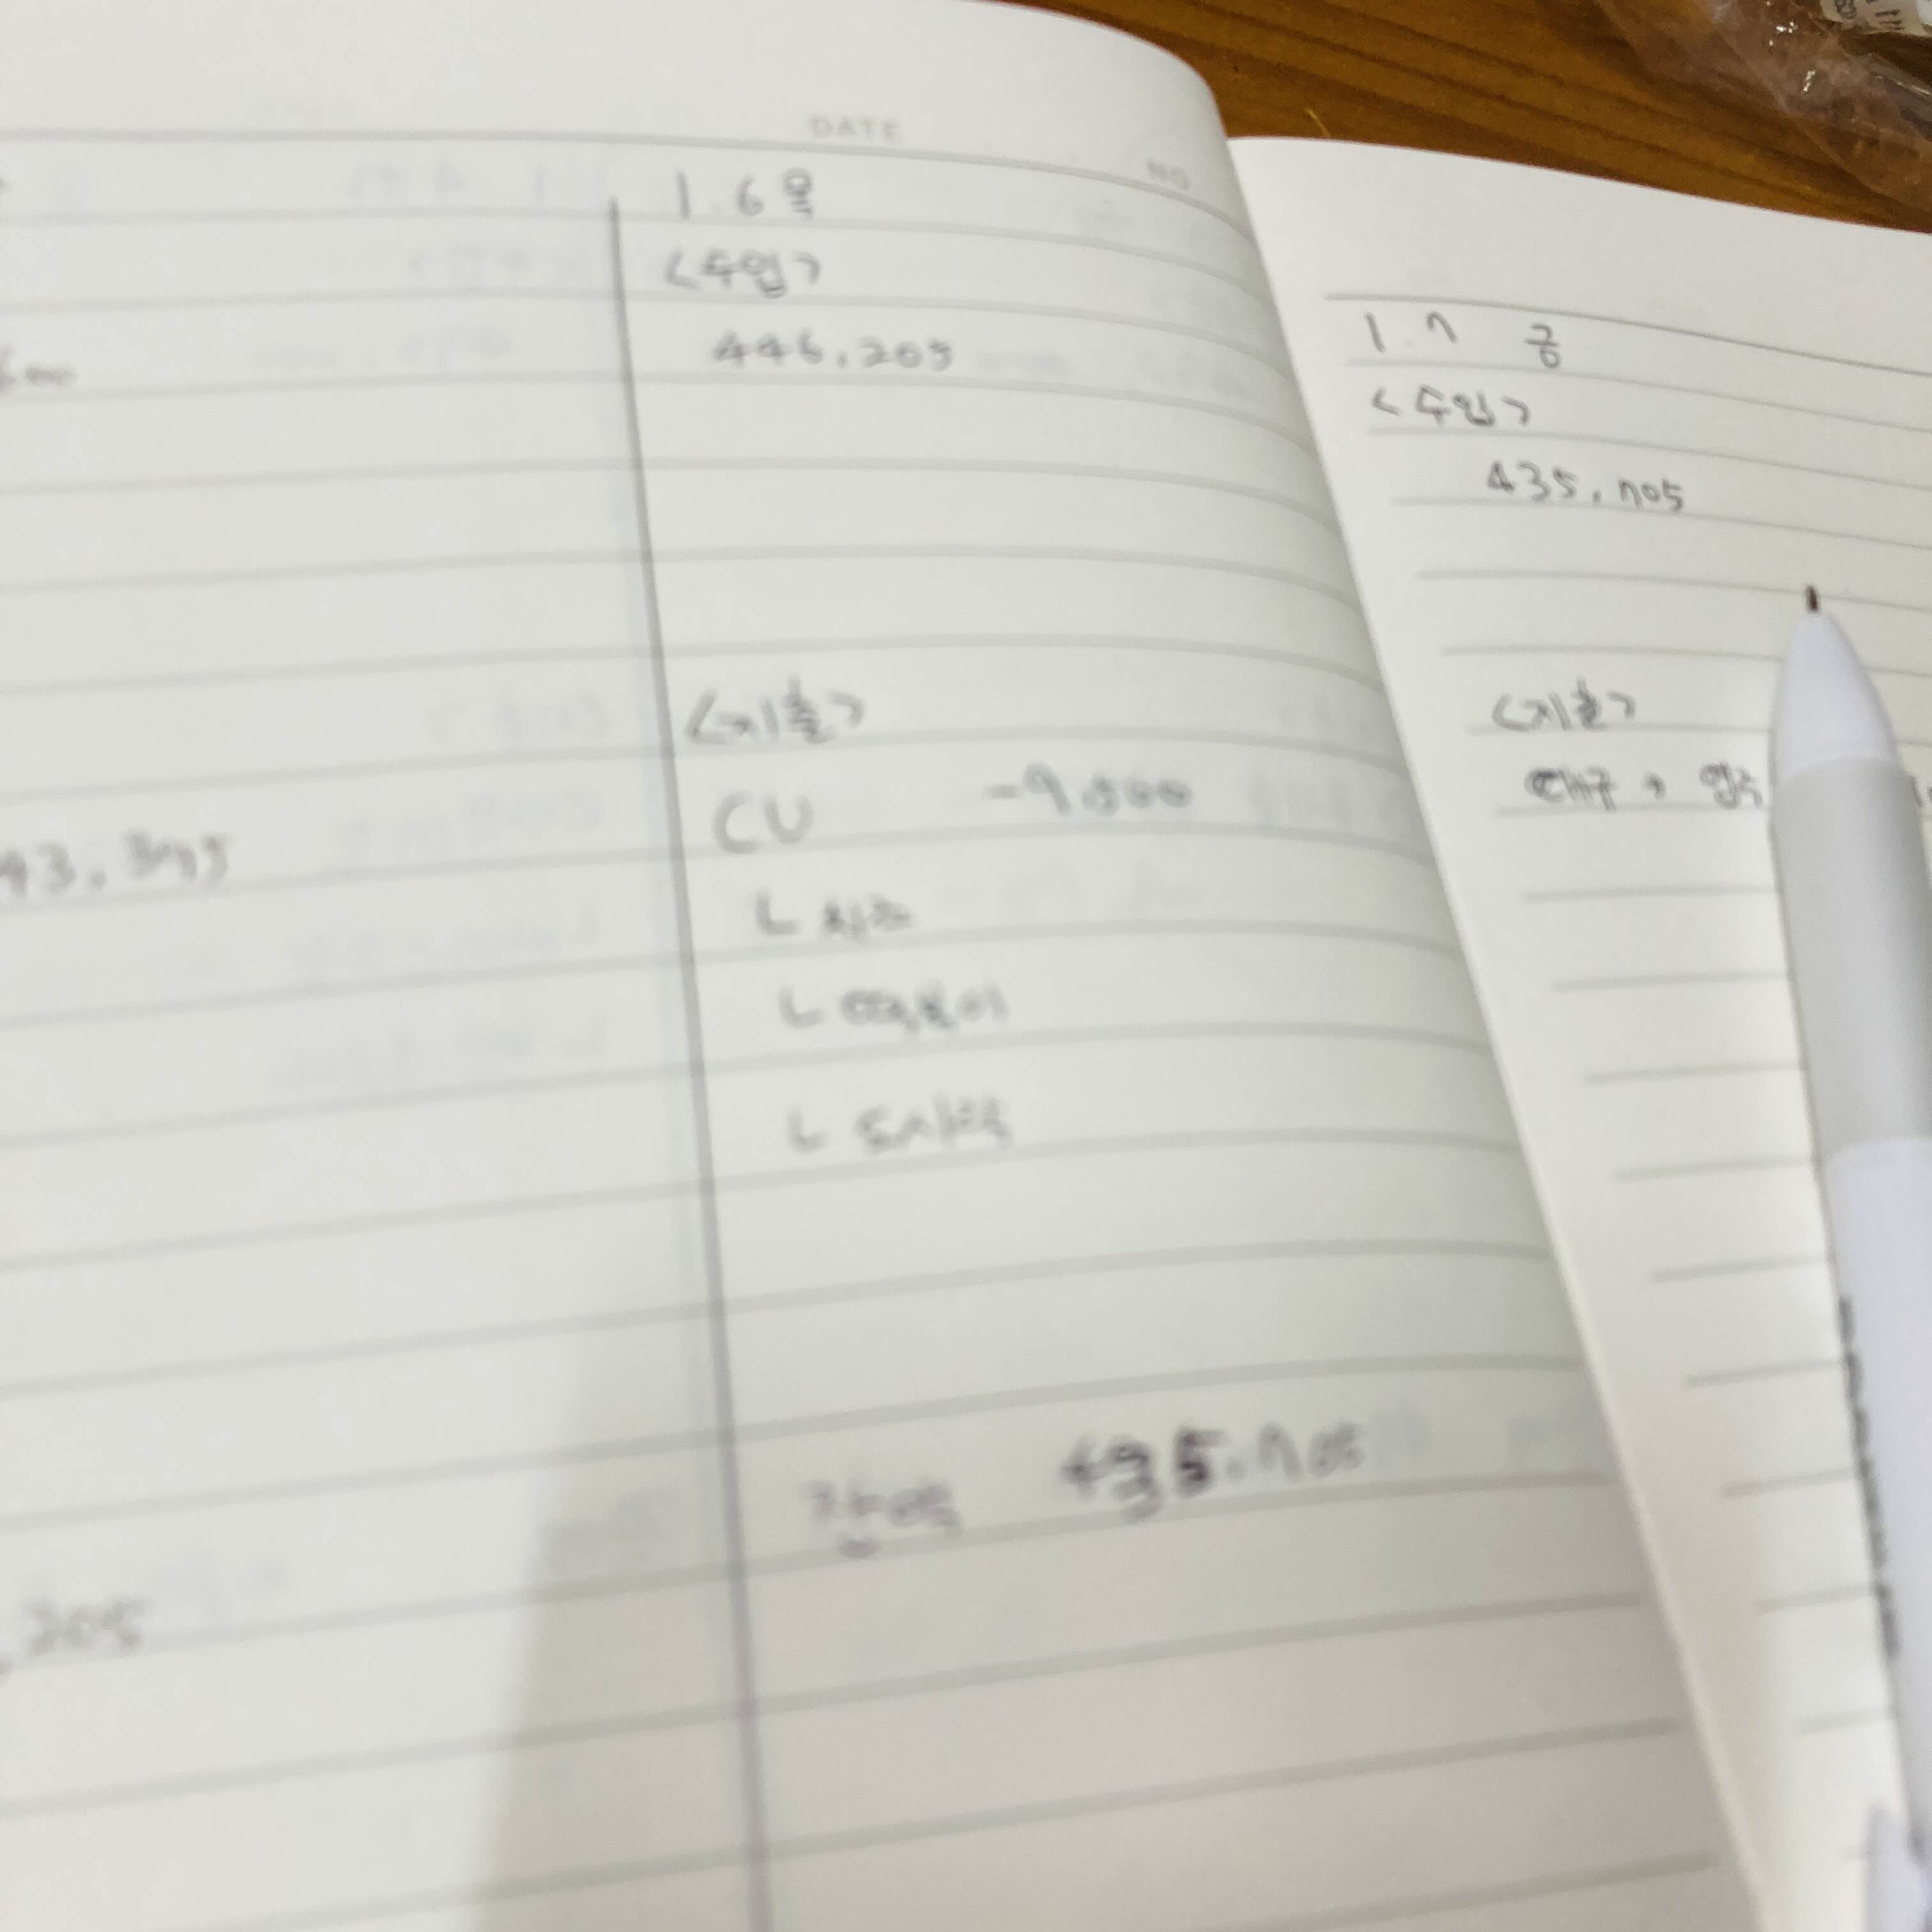 DATE
NO
1.6 목
<수입>
446,205
600
<지출>
CU -9,500
ㄴ 치즈
ㄴ 떡볶이
ㄴ 도시락
43,395
잔액 435,705
,205
1.7 금
<수입>
435,705
<지출>
대구 → 영주